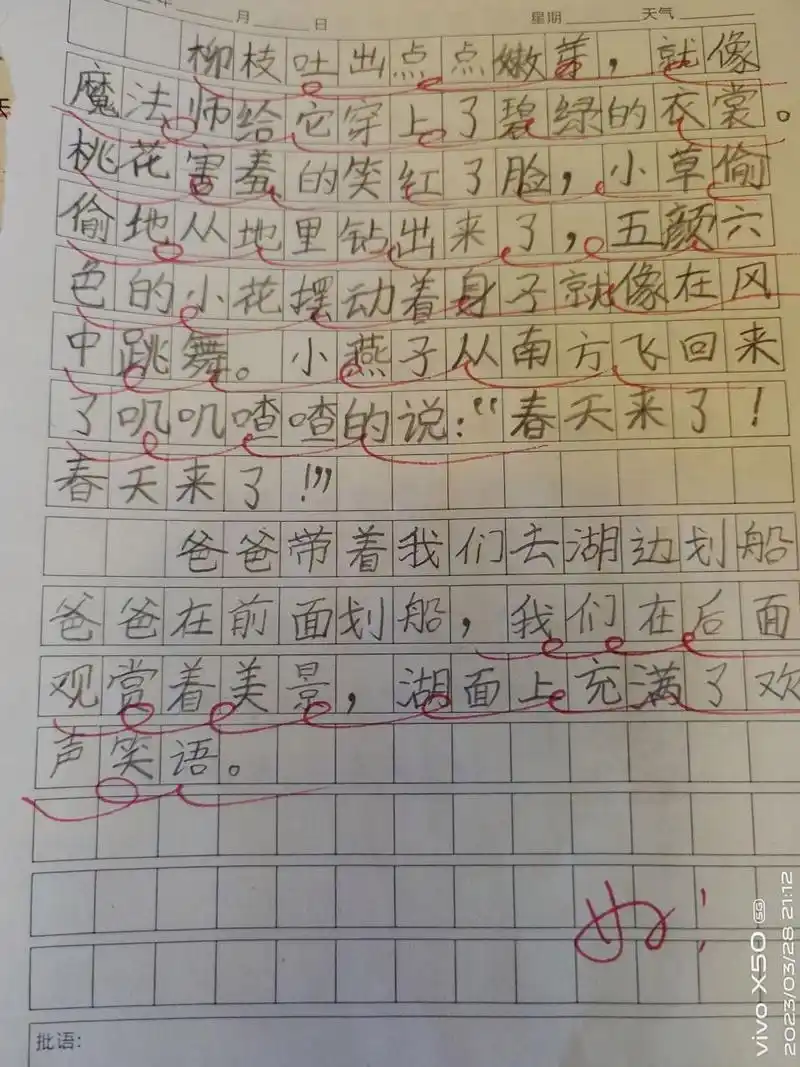 年 月 日 星期 天气
柳枝吐出点点嫩芽，就像
魔法师给它穿上了碧绿的衣裳。
桃花害羞的笑红了脸，小草偷
偷地从地里钻出来了，五颜六
色的小花摆动着身子就像在风
中跳舞。小燕子从南方飞回来
了叽叽喳喳的说：“春天来了！
春天来了！”
爸爸带着我们去湖边划船
爸爸在前面划船，我们在后面
观赏着美景，湖面上充满了欢
声笑语。
好！
批语：
vivo X50 5G
2023/03/28 21:12